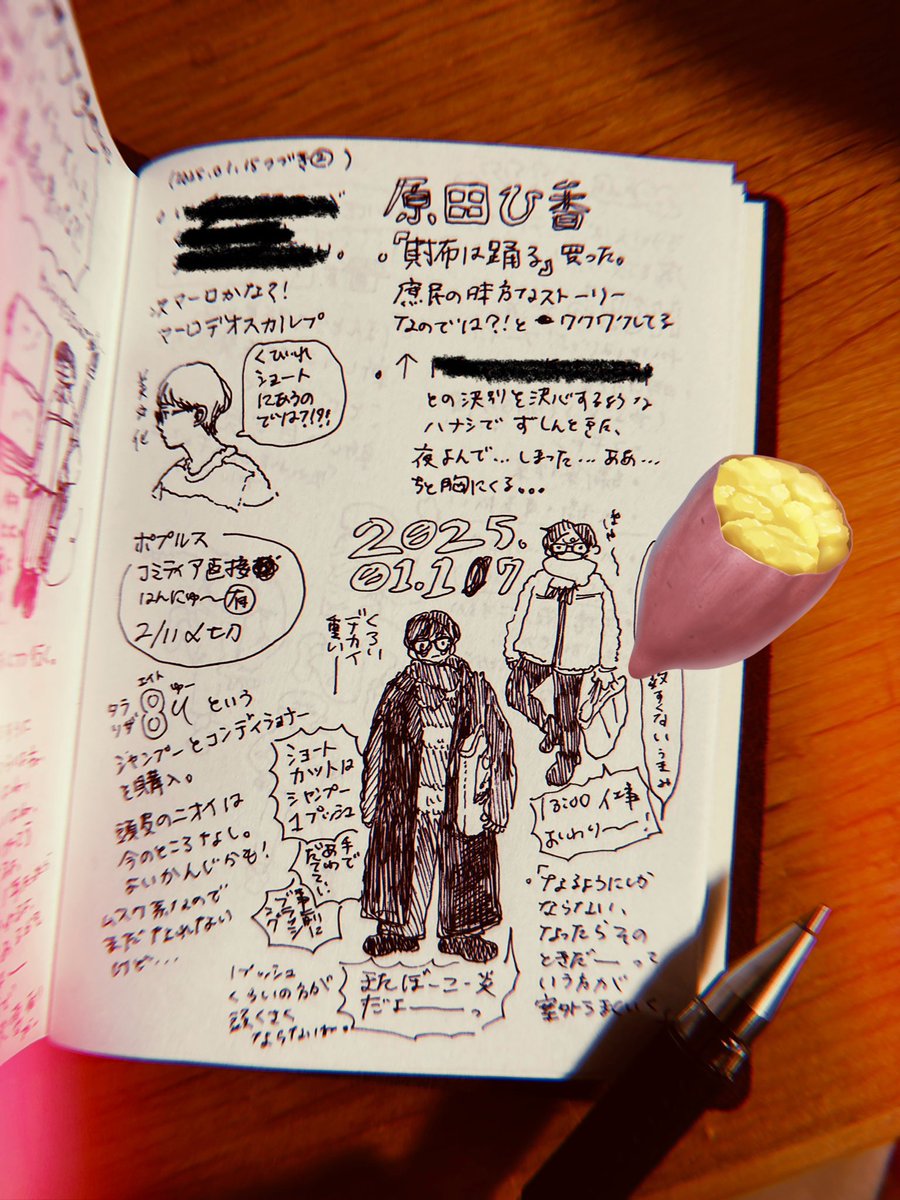 (2025.01.15つづき②)
※マーロかな?!
マーロデオスカルプ
くびれ
ショート
にあうの
では?!?!
ポプルス
コミティア直接
はんにゅ〜有
2/11〆切
エイト
8
という
シャンプーとコンディショナー
を購入。
頭皮のニオイは
今のところなし。
よいかんじかも!
ムスク系なので
まだなれない
けど…
原田ひ香
『財布は踊る』買った。
庶民の味方なストーリー
なのでは?!とワクワクしてる
↑
との決別を決心するような
ハナシでずしんときた、
夜よんで…しまった…ああ…
ちと胸にくる。。。
2025.
01.17
くろい
デカイ
重い
ショート
カットは
シャンプー
1プッシュ
手で
あわ
だてて
事前に
ブラッシング
1プッシュ
くらいの方が
頭くさく
ならない
またぼーこー炎
だよー。
13:00 仕事
おわりー!
「なるようにしか
ならない、
なったらその
ときだー」って
いう方が
案外うまくいく